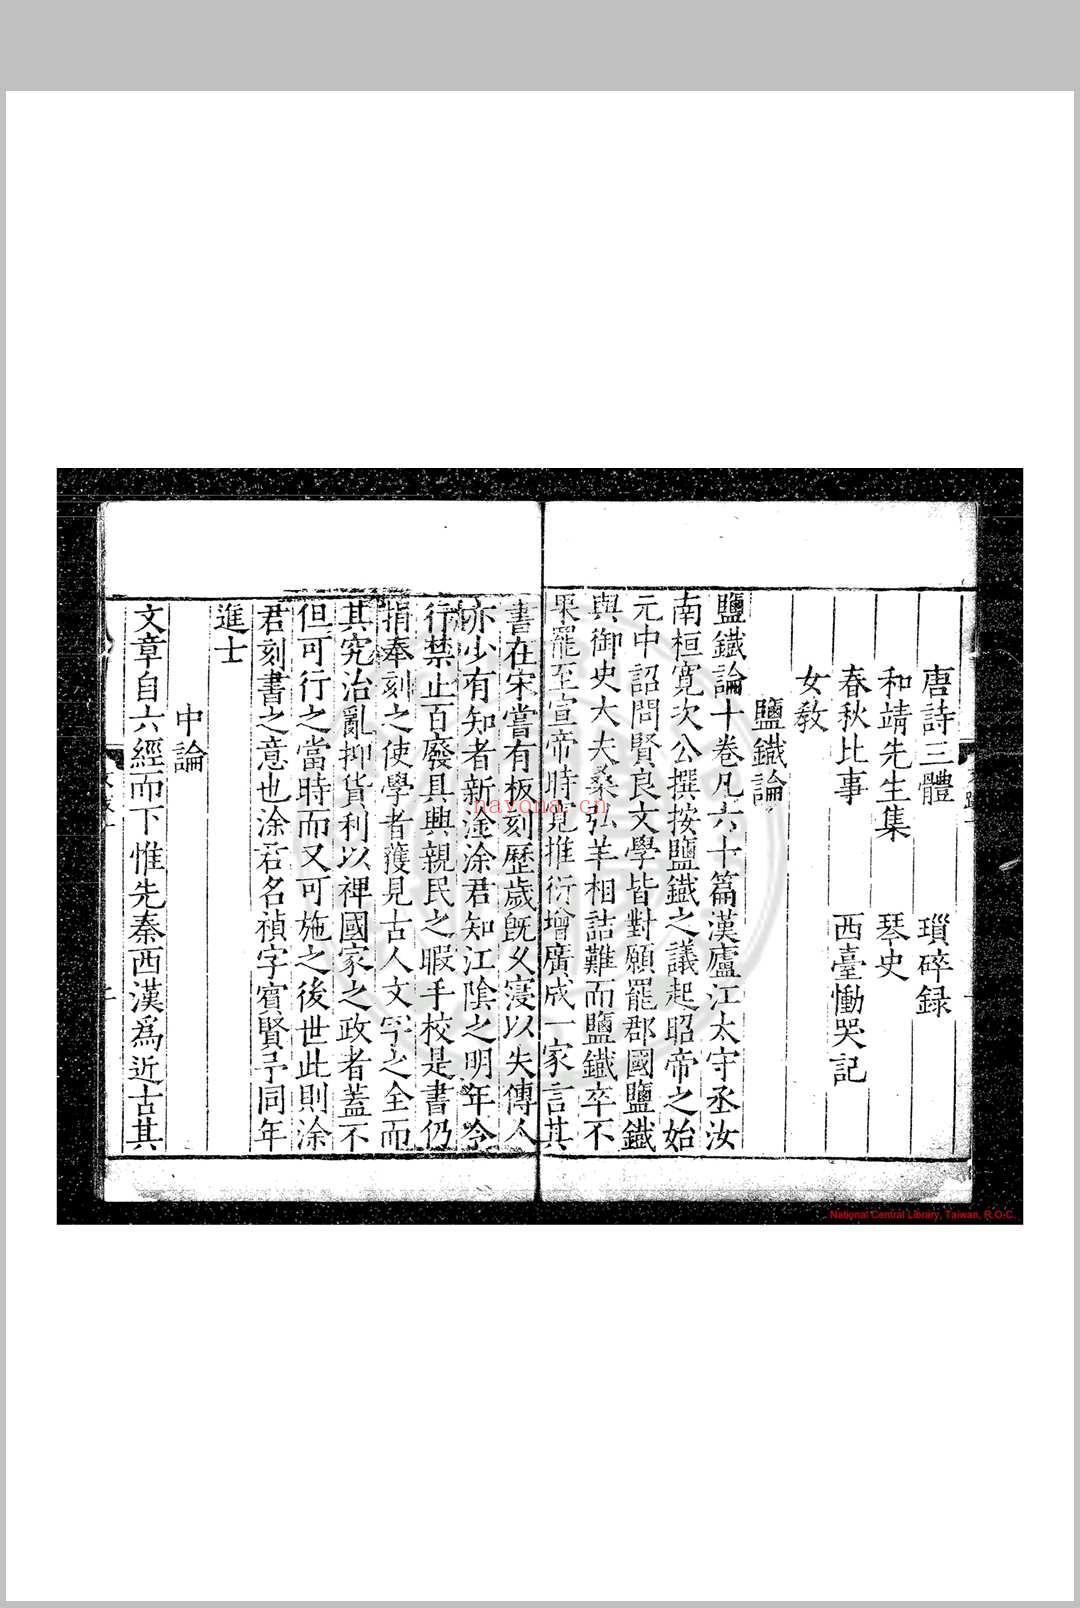 唐詩三體　瑣碎録
和靖先生集　琴史
春秋比事　西臺慟哭記
女教
鹽鐵論
鹽鐵論十卷凡六十篇漢廬江太守丞汝
南桓寬次公撰按鹽鐵之議起昭帝之始
元中詔問賢良文學皆對願罷郡國鹽鐵
與御史大夫桑弘羊相詰難而鹽鐵卒不
果罷至宣帝時寬推衍增廣成一家言其
書在宋嘗有板刻歷歲既久寖以失傳人
亦少有知者新淦涂君知江陰之明年令
行禁止百廢具興親民之暇手校是書仍
捐奉刻之使學者獲見古人文字之全而
其究治亂抑貨利以裨國家之政者蓋不
但可行之當時而又可施之後世此則涂
君刻書之意也涂君名禎字賓賢予同年
進士
中論
文章自六經而下惟先秦西漢為近古其
nayona.cn
National Central Library, Taiwan, R.O.C.